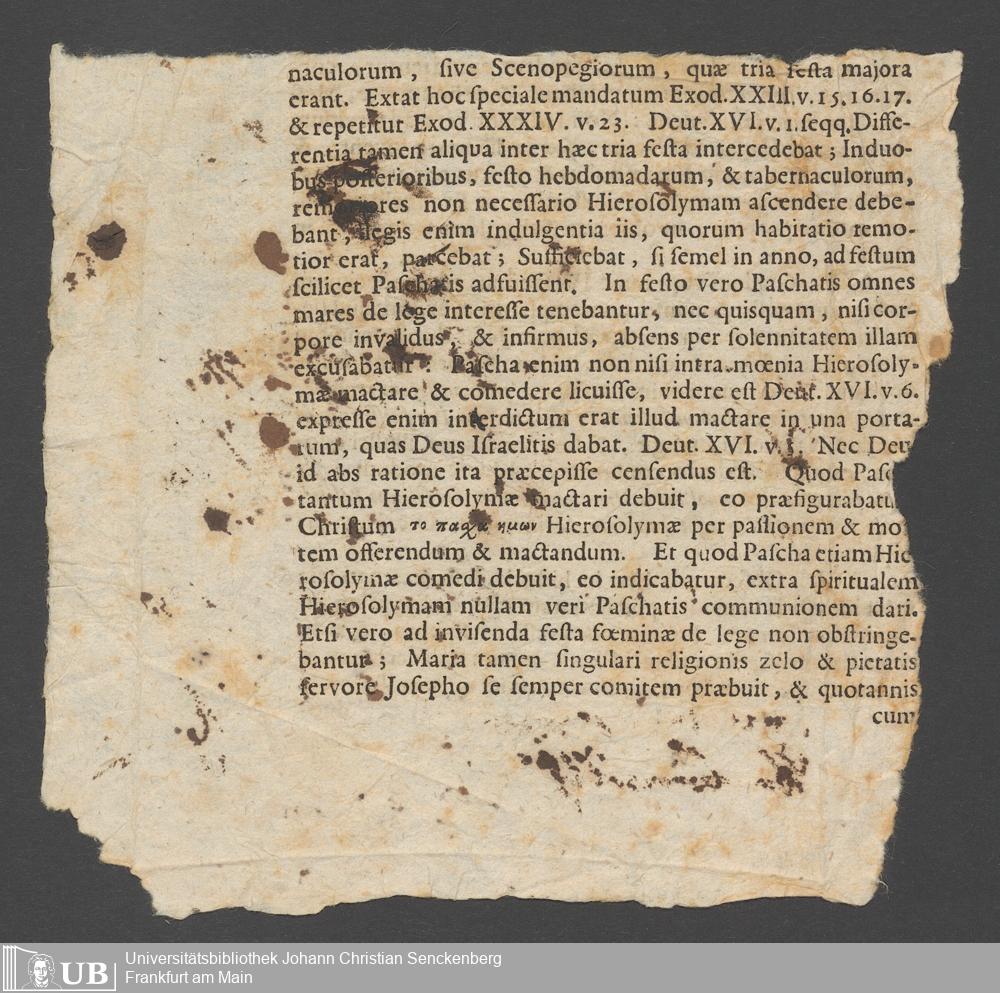 naculorum, ſive Scenopegiorum, quæ tria feſta majora
erant. Extat hoc ſpeciale mandatum Exod. XXIII. v. 15. 16. 17.
& repetitur Exod. XXXIV. v. 23. Deut. XVI. v. 1. ſeqq. Diffe-
rentia tamen aliqua inter hæc tria feſta intercedebat; In duo-
bus poſterioribus, feſto hebdomadarum, & tabernaculorum,
remotiores non neceſſario Hieroſolymam aſcendere debe-
bant, legis enim indulgentia iis, quorum habitatio remo-
tior erat, parcebat; Sufficiebat, ſi ſemel in anno, ad feſtum
ſcilicet Paſchatis adfuiſſent. In feſto vero Paſchatis omnes
mares de lege intereſſe tenebantur, nec quisquam, niſi cor-
pore invalidus, & infirmus, abſens per ſolennitatem illam
excuſabatur: Paſcha enim non niſi intra mœnia Hieroſoly-
mæ mactare & comedere licuiſſe, videre eſt Deut. XVI. v. 6.
expreſſe enim interdictum erat illud mactare in una porta-
rum, quas Deus Iſraelitis dabat. Deut. XVI. v. 5. Nec Deu
id abs ratione ita præcepiſſe cenſendus eſt. Quod Paſc
tantum Hieroſolymæ mactari debuit, eo præfigurabatu
Chriſtum το παχα ημων Hieroſolymæ per paſſionem & mo
tem offerendum & mactandum. Et quod Paſcha etiam Hie
roſolymæ comedi debuit, eo indicabatur, extra ſpiritualem
Hieroſolymam nullam veri Paſchatis communionem dari.
Etſi vero ad inviſenda feſta fœminæ de lege non obſtringe-
bantur; Maria tamen ſingulari religionis zelo & pietatis
fervore Joſepho ſe ſemper comitem præbuit, & quotannis
cum
UB
Universitätsbibliothek Johann Christian Senckenberg
Frankfurt am Main